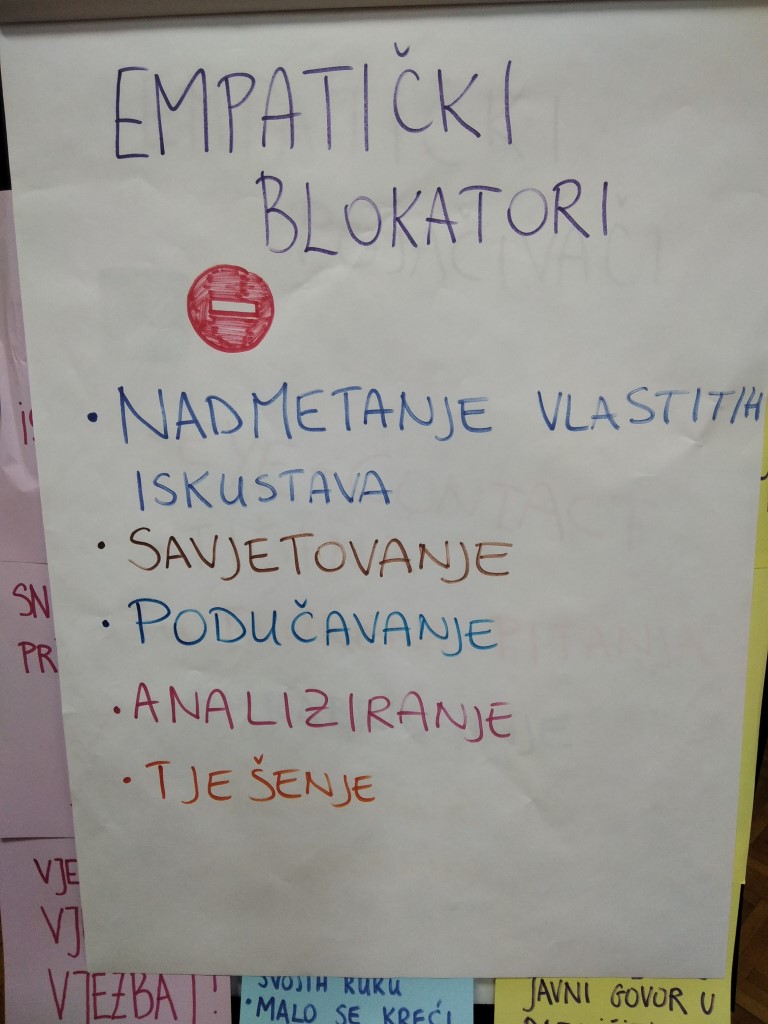 EMPATIČKI
BLOKATORI
• NADMETANJE VLASTITIH
ISKUSTAVA
• SAVJETOVANJE
• PODUČAVANJE
• ANALIZIRANJE
• TJEŠENJE
SN
PR
VJE
VJ
VJEŽBAJ!
SVOJIH RUKU
• MALO SE KREĆI
JAVNI GOVOR U